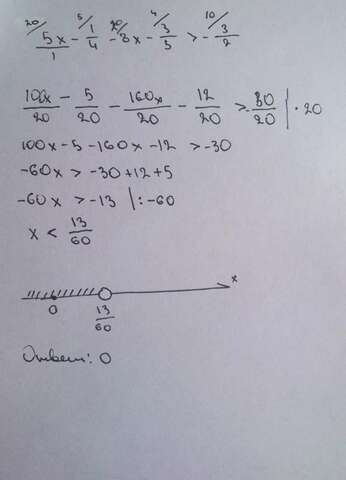 20/ 5x/1 - 5/ 1/4 - 20/ 8x - 4/ 3/5 > - 10/ 3/2
100x/20 - 5/20 - 160x/20 - 12/20 > -30/20 | · 20
100x - 5 - 160x - 12 > -30
-60x > -30 + 12 + 5
-60x > -13 | : -60
x < 13/60
x
0 13/60
Ответ: 0